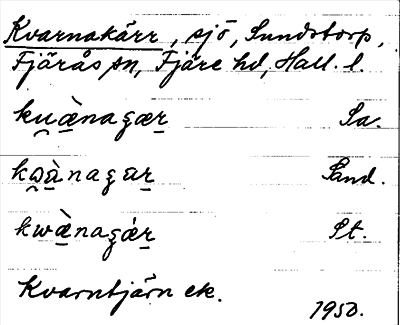 Kvarnakärr, sjö, Sundstorp,
Fjärås sn, Fjäre hd, Hall. l.
ku̯æ̀nagær Sa.
kωànagar Sand.
kwæ̀nagár St.
Kvarntjärn ek.
1950.